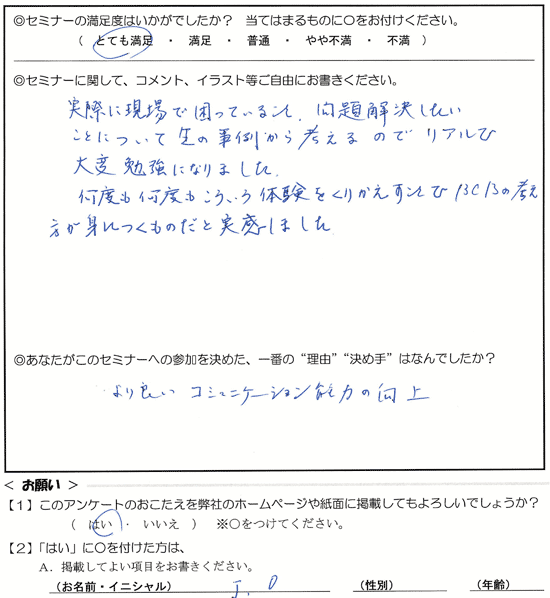 ◎セミナーの満足度はいかがでしたか？ 当てはまるものに○をお付けください。
（ とても満足 ・ 満足 ・ 普通 ・ やや不満 ・ 不満 ）
◎セミナーに関して、コメント、イラスト等ご自由にお書きください。
実際に現場で困っていること、問題解決したい
ことについて生の事例から考えるのでリアルで
大変勉強になりました。
何度も何度もこういう体験をくりかえすことで BCBの考え
方が身につくものだと実感しました
◎あなたがこのセミナーへの参加を決めた、一番の“理由”“決め手”はなんでしたか？
より良い コミュニケーション能力の向上
＜ お願い ＞
【１】このアンケートのおこたえを弊社のホームページや紙面に掲載してもよろしいでしょうか？
（ はい ・ いいえ ） ※○をつけてください。
【２】「はい」に○を付けた方は、
A．掲載してよい項目をお書きください。
（お名前・イニシャル） J. O （性別） （年齢）